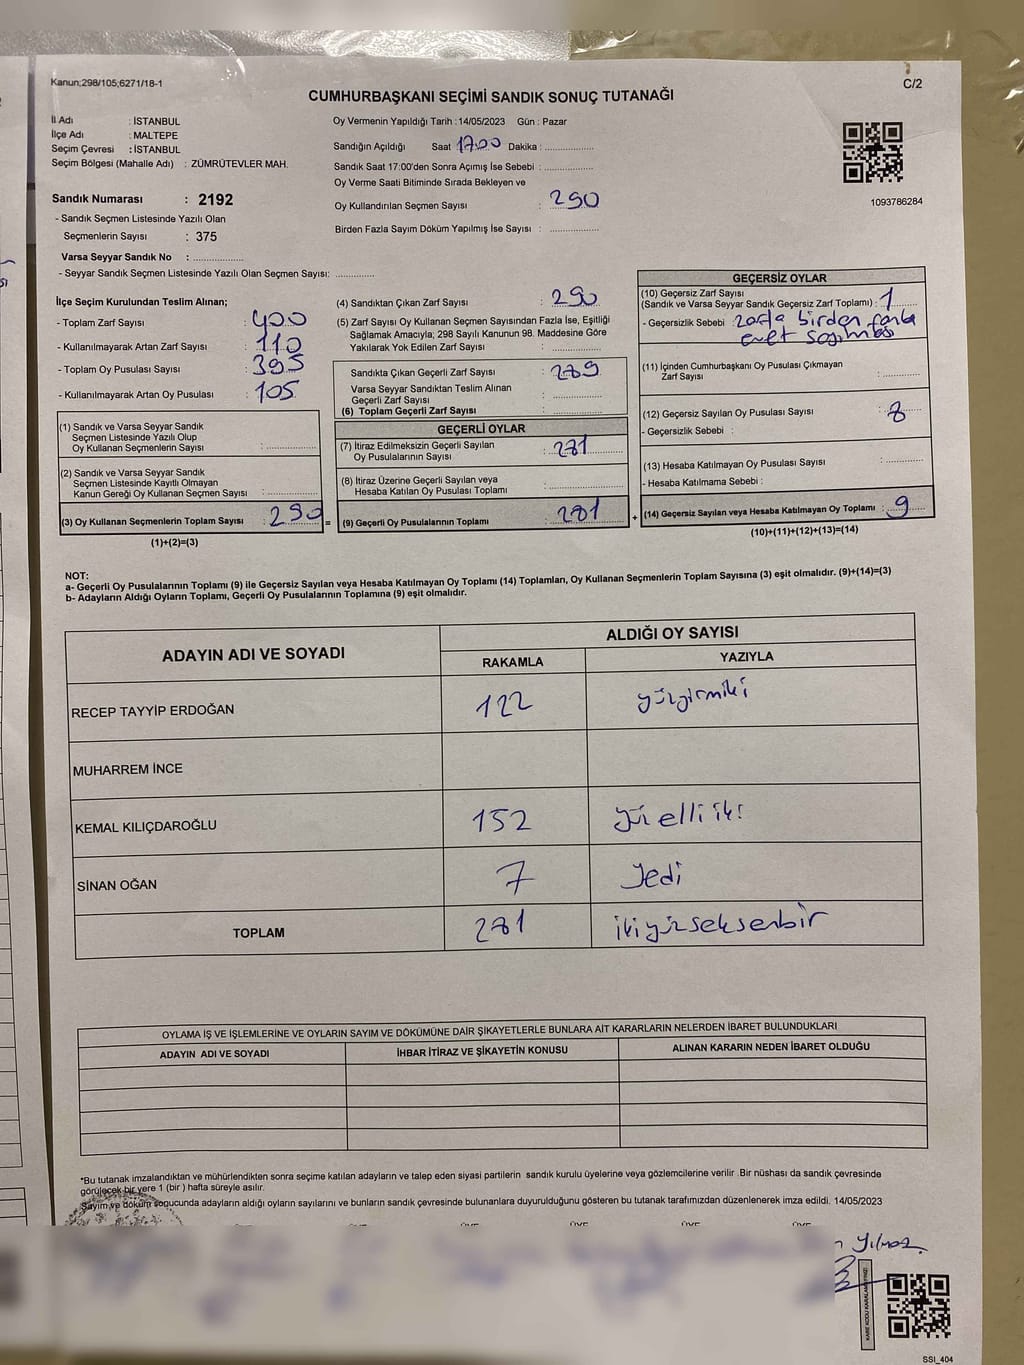 Kanun;298/105;6271/18-1
C/2
CUMHURBAŞKANI SEÇİMİ SANDIK SONUÇ TUTANAĞI
İl Adı : İSTANBUL
İlçe Adı : MALTEPE
Seçim Çevresi : İSTANBUL
Seçim Bölgesi (Mahalle Adı) : ZÜMRÜTEVLER MAH.
Sandık Numarası : 2192
- Sandık Seçmen Listesinde Yazılı Olan
Seçmenlerin Sayısı : 375
Varsa Seyyar Sandık No : ..................
- Seyyar Sandık Seçmen Listesinde Yazılı Olan Seçmen Sayısı: ..............
Oy Vermenin Yapıldığı Tarih :14/05/2023 Gün : Pazar
Sandığın Açıldığı Saat 17.00 Dakika : ..................
Sandık Saat 17:00'den Sonra Açımış İse Sebebi : ..................
Oy Verme Saati Bitiminde Sırada Bekleyen ve
Oy Kullandırılan Seçmen Sayısı : 290
Birden Fazla Sayım Döküm Yapılmış İse Sayısı : ..................
1093786284
İlçe Seçim Kurulundan Teslim Alınan;
- Toplam Zarf Sayısı : 400
- Kullanılmayarak Artan Zarf Sayısı : 110
- Toplam Oy Pusulası Sayısı : 395
- Kullanılmayarak Artan Oy Pusulası : 105
(1) Sandık ve Varsa Seyyar Sandık
Seçmen Listesinde Yazılı Olup
Oy Kullanan Seçmenlerin Sayısı : ..................
(2) Sandık ve Varsa Seyyar Sandık
Seçmen Listesinde Kayıtlı Olmayan
Kanun Gereği Oy Kullanan Seçmen Sayısı : ..................
(3) Oy Kullanan Seçmenlerin Toplam Sayısı : 290 =
(1)+(2)=(3)
(4) Sandıktan Çıkan Zarf Sayısı : 290
(5) Zarf Sayısı Oy Kullanan Seçmen Sayısından Fazla İse, Eşitliği
Sağlamak Amacıyla; 298 Sayılı Kanunun 98. Maddesine Göre
Yakılarak Yok Edilen Zarf Sayısı : ..................
Sandıkta Çıkan Geçerli Zarf Sayısı : 289
Varsa Seyyar Sandıktan Teslim Alınan
Geçerli Zarf Sayısı : ..................
(6) Toplam Geçerli Zarf Sayısı : ..................
GEÇERLİ OYLAR
(7) İtiraz Edilmeksizin Geçerli Sayılan
Oy Pusulalarının Sayısı : 281
(8) İtiraz Üzerine Geçerli Sayılan veya
Hesaba Katılan Oy Pusulası Toplamı : ..................
(9) Geçerli Oy Pusulalarının Toplamı : 281 +
GEÇERSİZ OYLAR
(10) Geçersiz Zarf Sayısı
(Sandık ve Varsa Seyyar Sandık Geçersiz Zarf Toplamı) : 1
- Geçersizlik Sebebi : zarfta birden fazla
evet seçilmesi
(11) İçinden Cumhurbaşkanı Oy Pusulası Çıkmayan
Zarf Sayısı : ..................
(12) Geçersiz Sayılan Oy Pusulası Sayısı : 8
- Geçersizlik Sebebi :
(13) Hesaba Katılmayan Oy Pusulası Sayısı : ..................
- Hesaba Katılmama Sebebi :
(14) Geçersiz Sayılan veya Hesaba Katılmayan Oy Toplamı : 9
(10)+(11)+(12)+(13)=(14)
NOT:
a- Geçerli Oy Pusulalarının Toplamı (9) ile Geçersiz Sayılan veya Hesaba Katılmayan Oy Toplamı (14) Toplamları, Oy Kullanan Seçmenlerin Toplam Sayısına (3) eşit olmalıdır. (9)+(14)=(3)
b- Adayların Aldığı Oyların Toplamı, Geçerli Oy Pusulalarının Toplamına (9) eşit olmalıdır.
ADAYIN ADI VE SOYADI
ALDIĞI OY SAYISI
RAKAMLA YAZIYLA
RECEP TAYYİP ERDOĞAN 122 yüzyirmiiki
MUHARREM İNCE
KEMAL KILIÇDAROĞLU 152 yüz elli iki
SİNAN OĞAN 7 Yedi
TOPLAM 281 ikiyüzseksenbir
OYLAMA İŞ VE İŞLEMLERİNE VE OYLARIN SAYIM VE DÖKÜMÜNE DAİR ŞİKAYETLERLE BUNLARA AİT KARARLARIN NELERDEN İBARET BULUNDUKLARI
ADAYIN ADI VE SOYADI İHBAR İTİRAZ VE ŞİKAYETİN KONUSU ALINAN KARARIN NEDEN İBARET OLDUĞU
*Bu tutanak imzalandıktan ve mühürlendikten sonra seçime katılan adayların ve talep eden siyasi partilerin sandık kurulu üyelerine veya gözlemcilerine verilir .Bir nüshası da sandık çevresinde
görülecek bir yere 1 (bir ) hafta süreyle asılır.
Sayım ve döküm sonucunda adayların aldığı oyların sayılarını ve bunların sandık çevresinde bulunanlara duyurulduğunu gösteren bu tutanak tarafımızdan düzenlenerek imza edildi. 14/05/2023
ÜYE ÜYE ÜYE ÜYE
Yılmaz
SSI_404